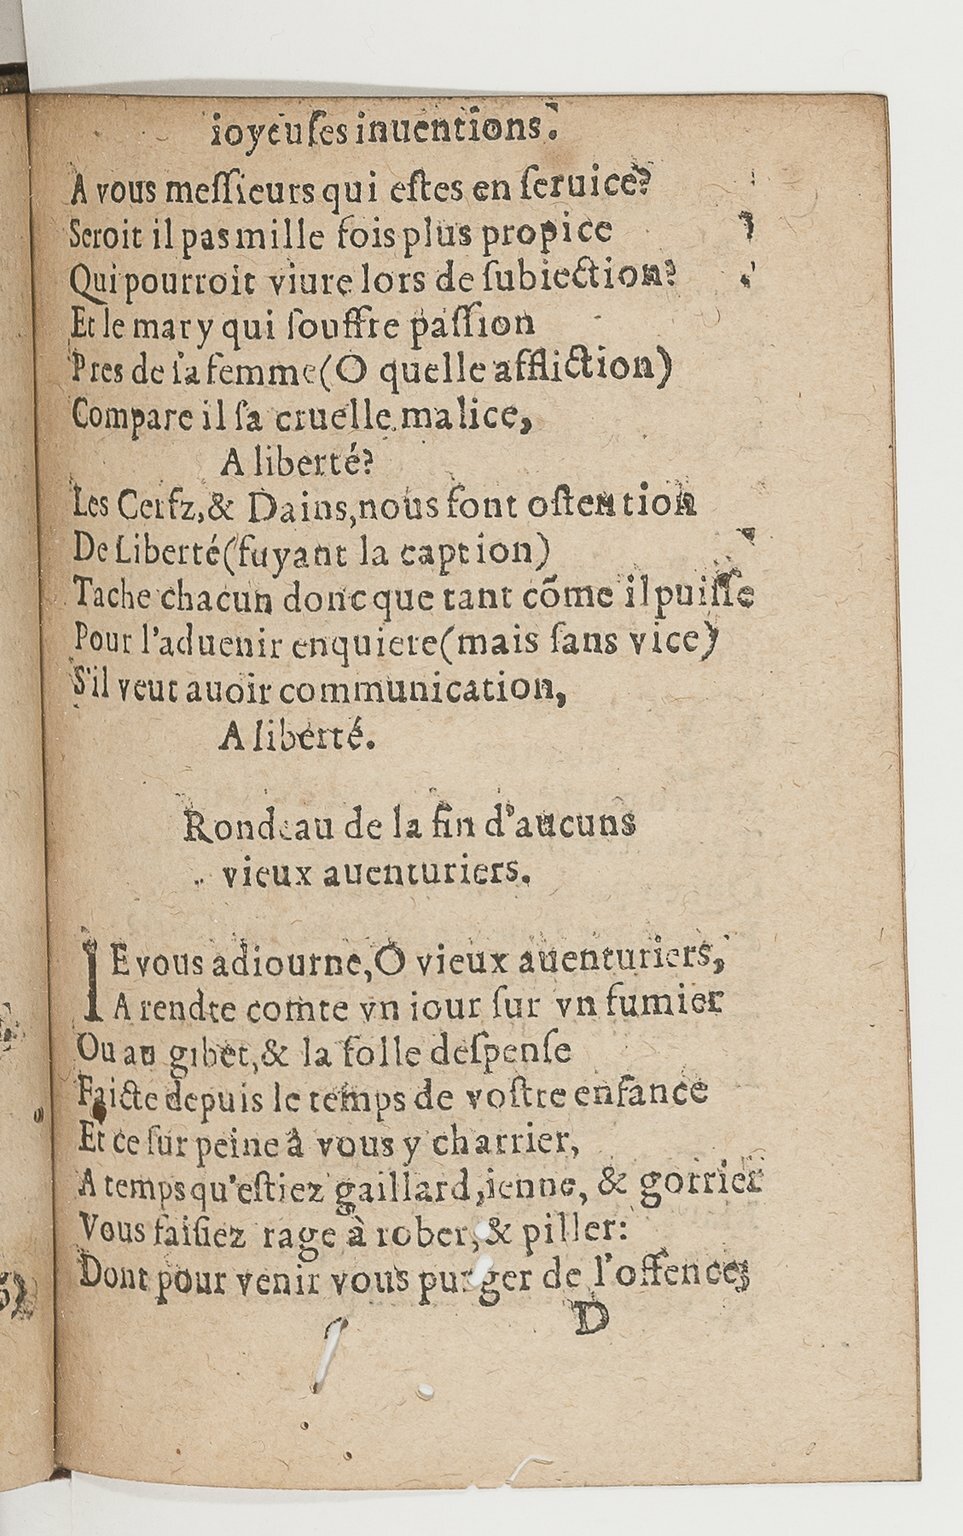 ioyeuſes inuentions.
A vous meſſieurs qui eſtes en ſeruice?
Seroit il pas mille fois plus propice
Qui pourroit viure lors de ſubiection?
Et le mary qui ſouffre paſſion
Pres de ſa femme (O quelle affliction)
Compare il ſa cruelle malice,
A liberté?
Les Cerfz, & Dains, nous font oſtention
De Liberté (fuyant la caption)
Tache chacun donc que tant cõme il puiſſe
Pour l'aduenir enquiere (mais ſans vice)
S'il veut auoir communication,
A liberté.
Rondeau de la fin d'aucuns
vieux auenturiers.
IE vous adiourne, O vieux auenturiers,
A rendre comte vn iour ſur vn fumier
Ou au gibet, & la folle deſpenſe
Faicte depuis le temps de voſtre enfance
Et ce ſur peine à vous y charrier,
A temps qu'eſtiez gaillard, ienne, & gorrier
Vous faiſiez rage à rober, & piller:
Dont pour venir vous purger de l'offence;
D